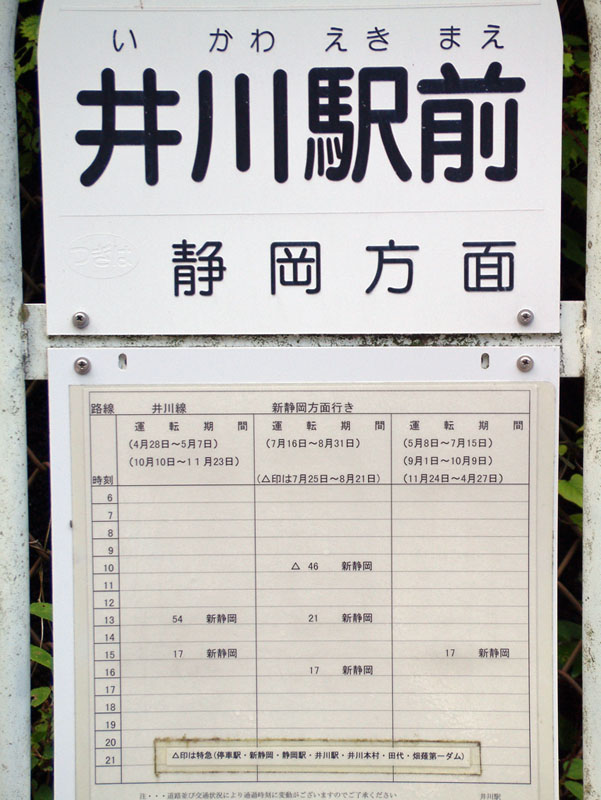 い かわ えき まえ
井川駅前
静岡方面
路線 井川線 新静岡方面行き
運転期間 運転期間 運転期間
(4月28日～5月7日) (7月16日～8月31日) (5月8日～7月15日)
(10月10日～11月23日) (9月1日～10月9日)
時刻 (△印は7月25日～8月21日) (11月24日～4月27日)
6
7
8
9
10 △ 46 新静岡
11
12
13 54 新静岡 21 新静岡
14
15 17 新静岡 17 新静岡
16 17 新静岡
17
18
19
20
21
△印は特急(停車駅・新静岡・静岡駅・井川駅・井川本村・田代・畑薙第一ダム)
注・・・道路並び交通状況により通過時刻に変動がございますのでご了承ください 井川駅